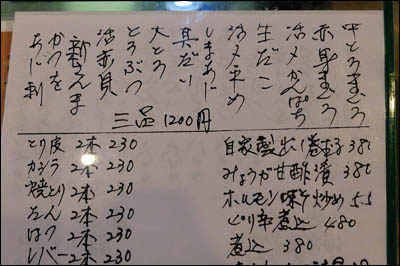 中とろまぐろ
赤身まぐろ
活〆かんぱち
生だこ
活〆平め
しまあじ
真だい
大とろ
とろぶつ
活赤貝
新さんま
かつを
あじ刺
三品 1200円
自家製出し巻玉子 380
みょうが甘酢漬 380
ホルモン味そ炒め 55
ピリ辛煮込 480
煮込 380
とり皮 2本 230
カシラ 2本 230
焼とり 2本 230
たん 2本 230
はつ 2本 230
レバー 2本 230